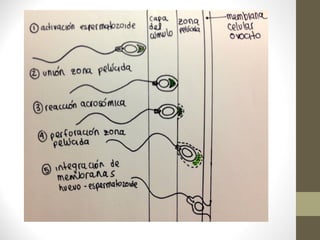 ① activación espermatozoide
capa
del
cúmulo
zona
pelúcida
membrana
celular
ovocito
② unión zona pelúcida
③ reacción acrosómica
④ perforación zona
pelúcida
⑤ integración de
membranas
huevo - espermatozoide